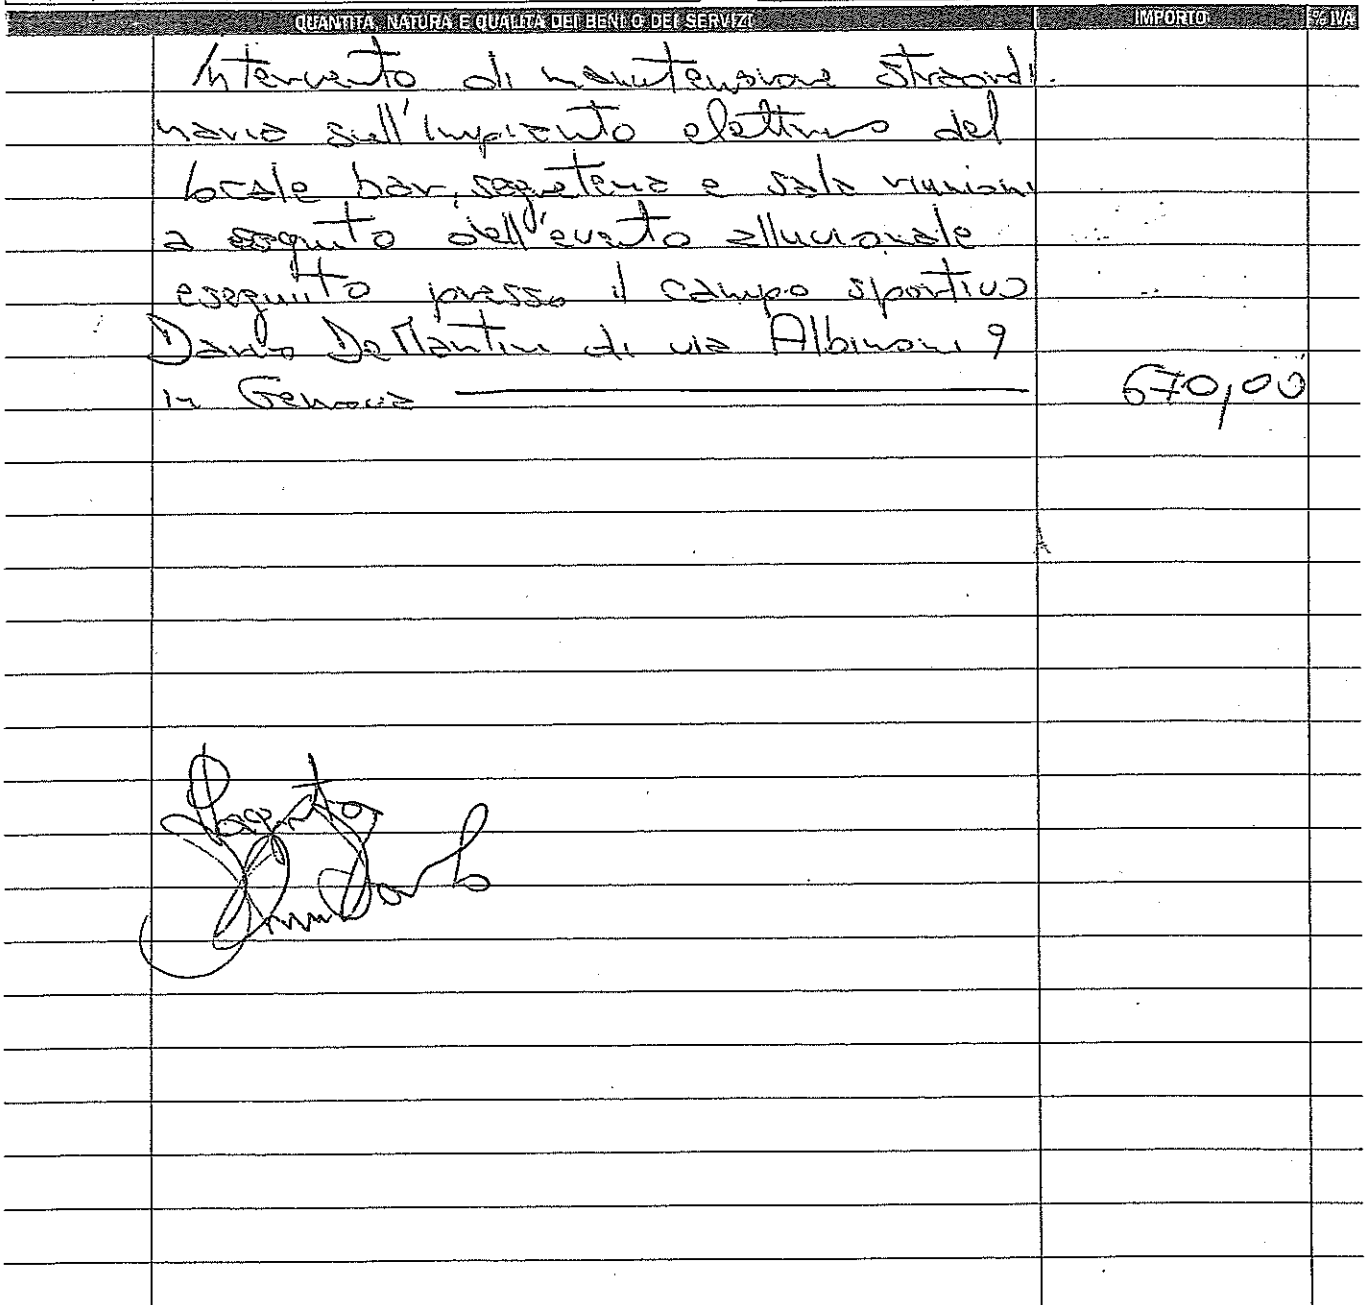 QUANTITÀ, NATURA E QUALITÀ DEI BENI O DEI SERVIZI IMPORTO % IVA
Intervento di manutenzione straordi-
naria sull'impianto elettrico del
locale bar, segreteria e sala riunioni
a seguito dell'evento alluvionale
eseguito presso il campo sportivo
Dario De Martini di via Albinoni 9
in Genova 670,00
Pagato